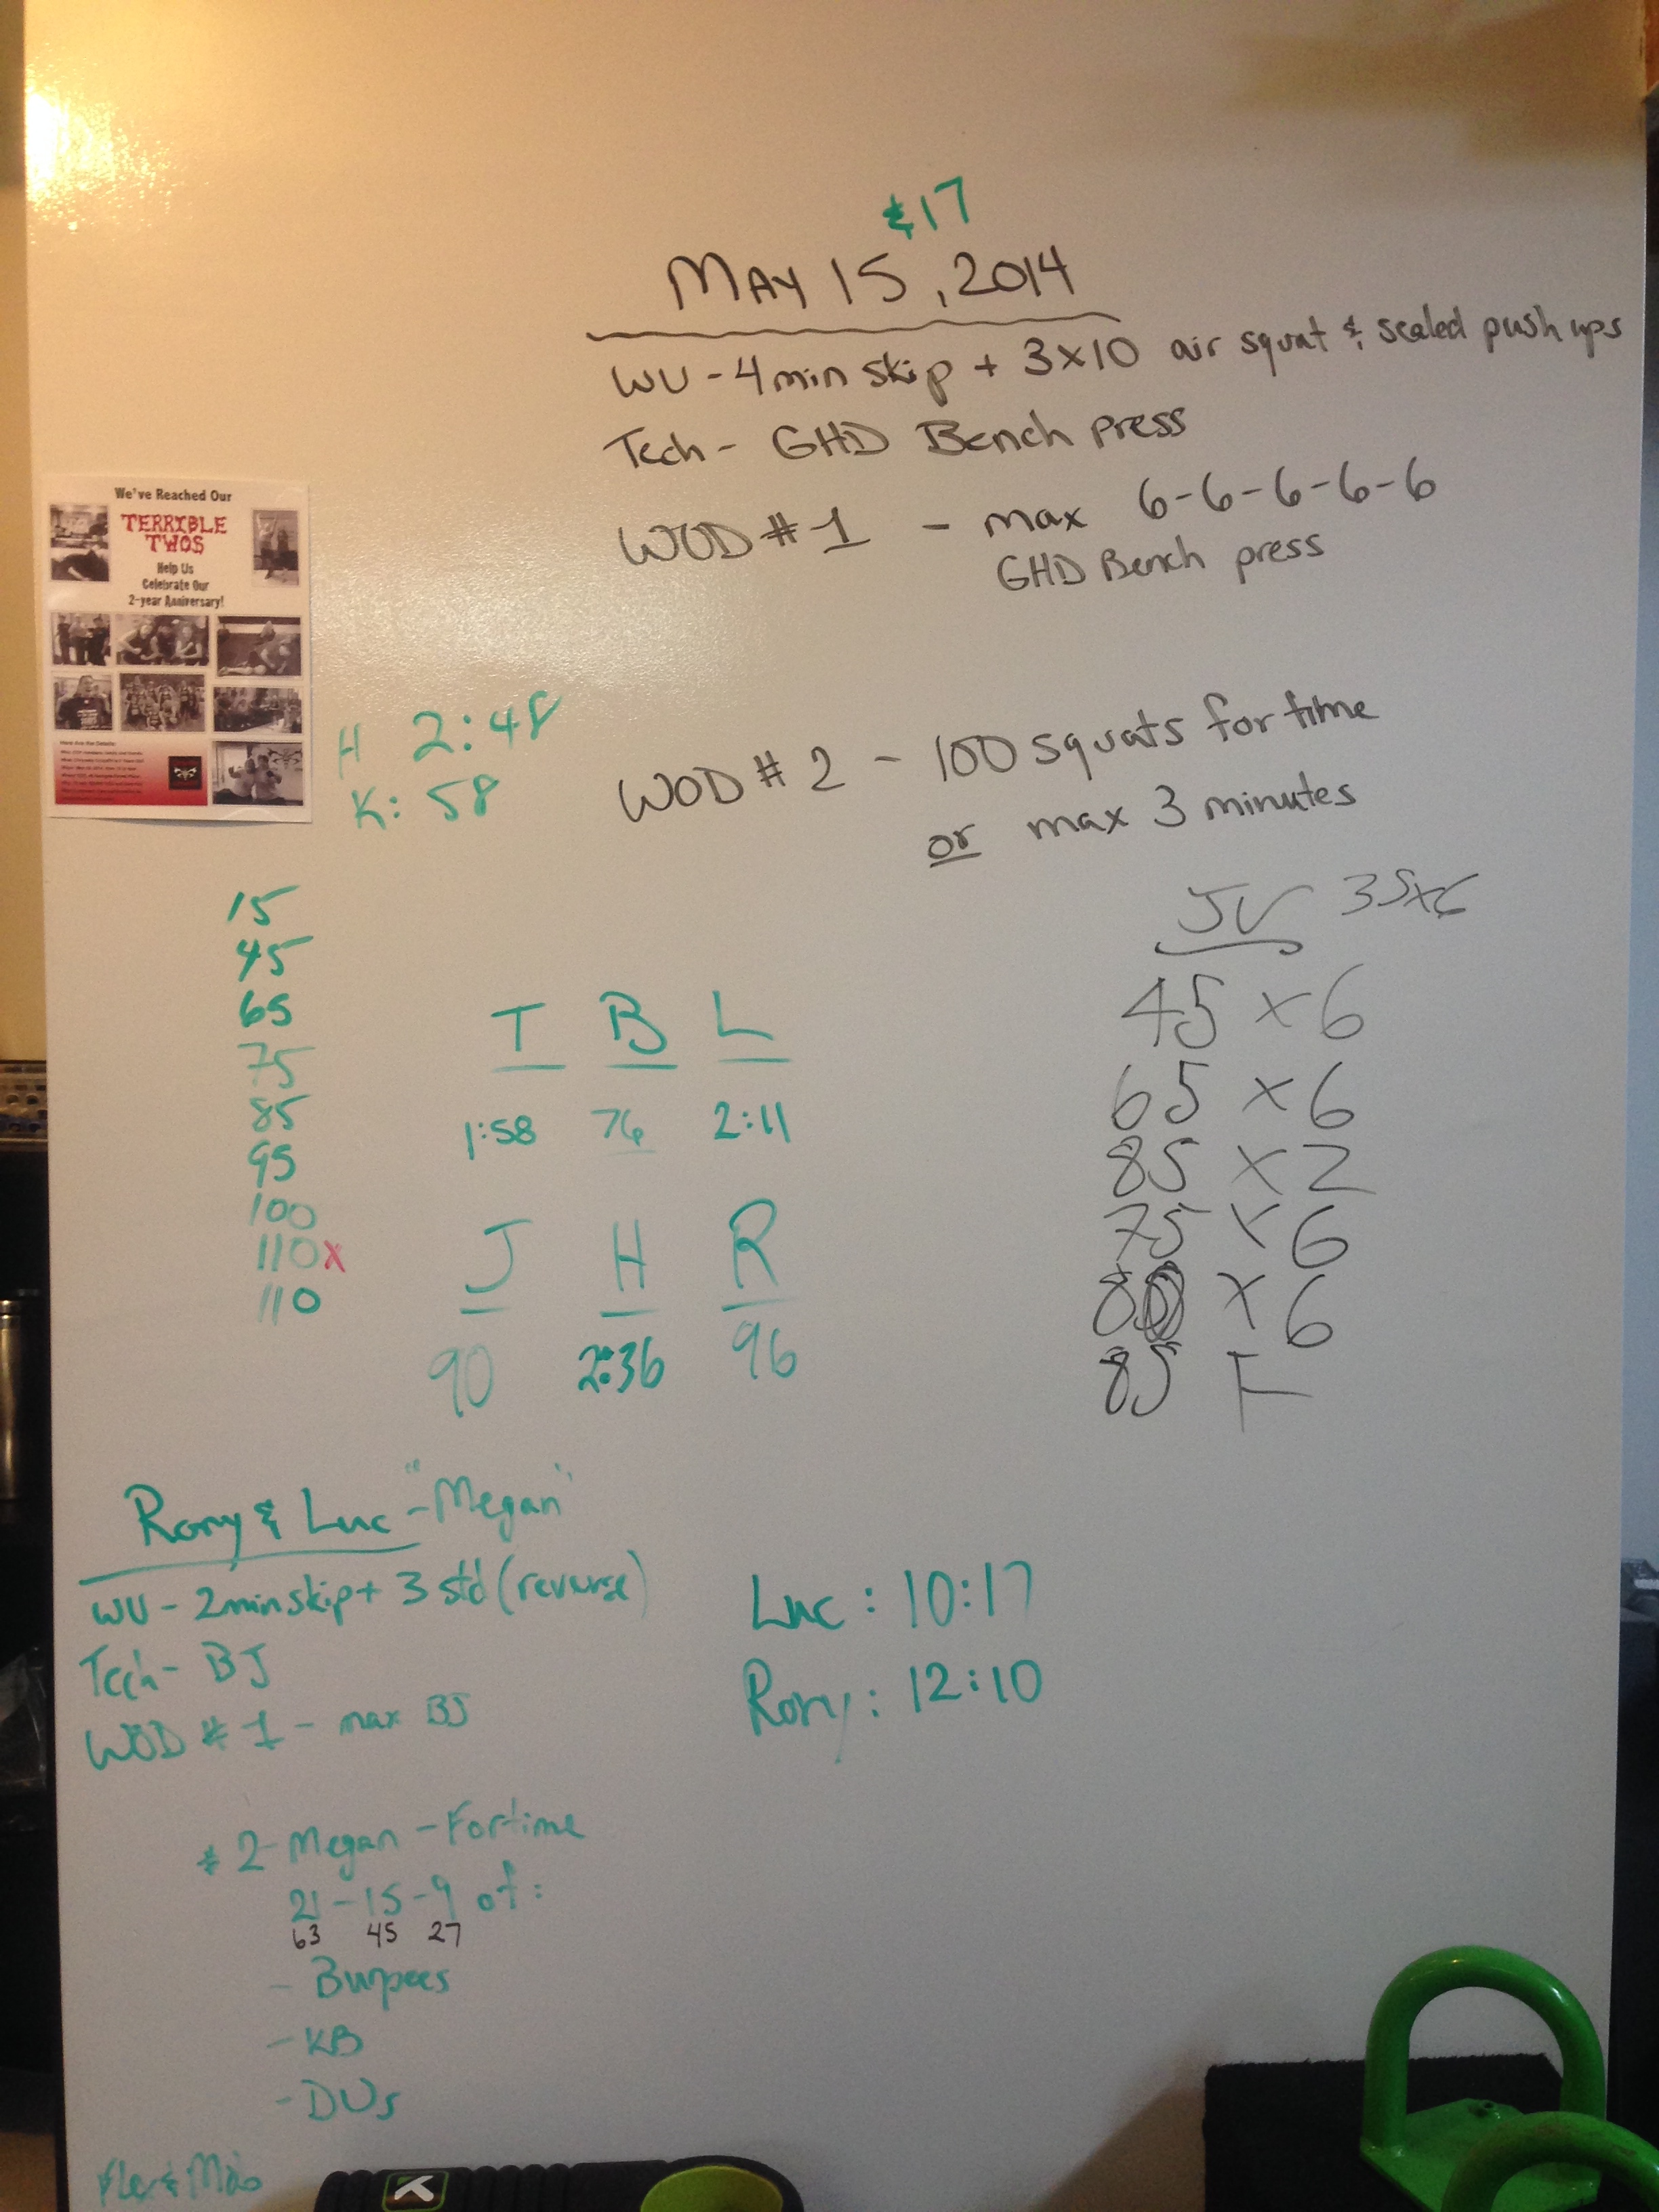 & 17
MAY 15, 2014
WU - 4 min skip + 3x10 air squat & scaled push ups
Tech - GHD Bench press
WOD #1 - max 6-6-6-6-6
GHD Bench press
We've Reached Our
TERRIBLE
TWOS
Help Us
Celebrate Our
2-year Anniversary!
Here Are the Details:
H 2:48
K: 58
WOD #2 - 100 squats for time
or max 3 minutes
15
45
65
75
85
95
100
110x
110
T B L
1:58 76 2:11
J H R
90 2:36 96
JV 35x6
45 x 6
65 x 6
85 x 2
75 x 6
80 x 6
85 F
Rory & Luc - "Megan"
WU - 2 min skip + 3 std (reverse)
Tech - BJ
WOD #1 - max BJ
Luc: 10:17
Rory: 12:10
#2 - Megan - For time
21 - 15 - 9 of:
63 45 27
- Burpees
- KB
- DUs